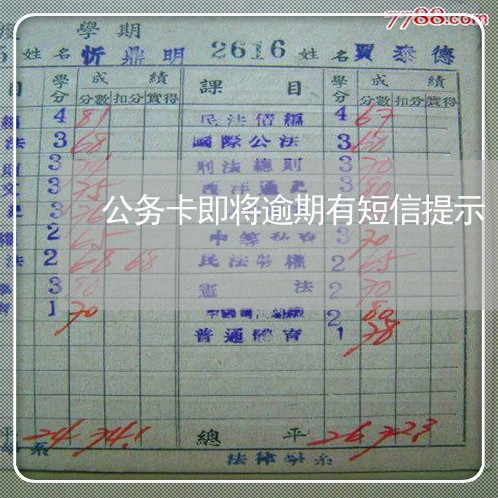 7788.com
學期
姓名 忻鼎明 2616 姓名 賈泰德
目 學分 成績 課目 學分 成績
分數 扣分 實得 分數 扣分 實得
4 81 民法債編 4 67
法 3 68 國際公法 3 60
3 刑法總則 3 70
3 75 西洋通史 3 80
公务卡即将逾期有短信提示
2 65 3 70
法 2 68 68 民法物權 2 65
3 80 憲法 2 70
1 70 2 80
普通體育 1 78
平 24 74.1 總平 26 72.3
系 法律學系